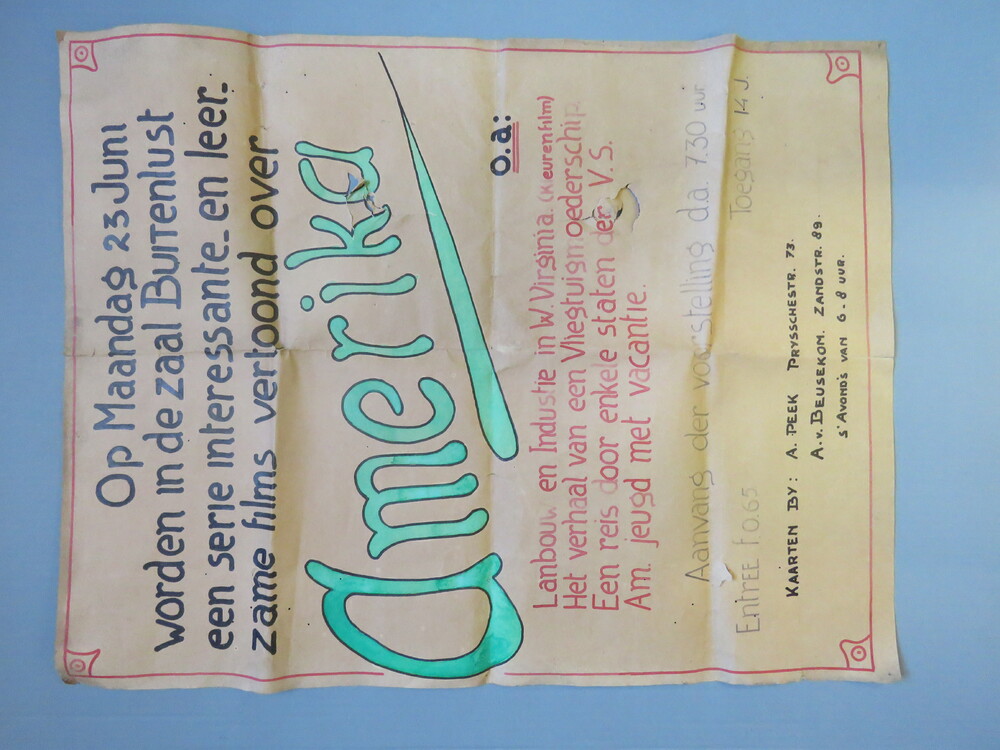 Op Maandag 23 Juni
worden in de zaal Buitenlust
een serie interessante en leer-
zame films vertoond over
amerika
o.a:
Lanbouw en Industie in W. Virginia. (Kleurenfilm)
Het verhaal van een Vliegtuigmoederschip
Een reis door enkele staten der V.S.
Am. jeugd met vacantie.
Aanvang der voorstelling d.a. 7.30 uur
Entree f 0.65 Toegang 14 J.
KAARTEN BY: A. PEEK PRYSSCHESTR. 73.
A.v. BEUSEKOM. ZANDSTR. 89.
S'AVOND'S VAN 6-8 UUR.